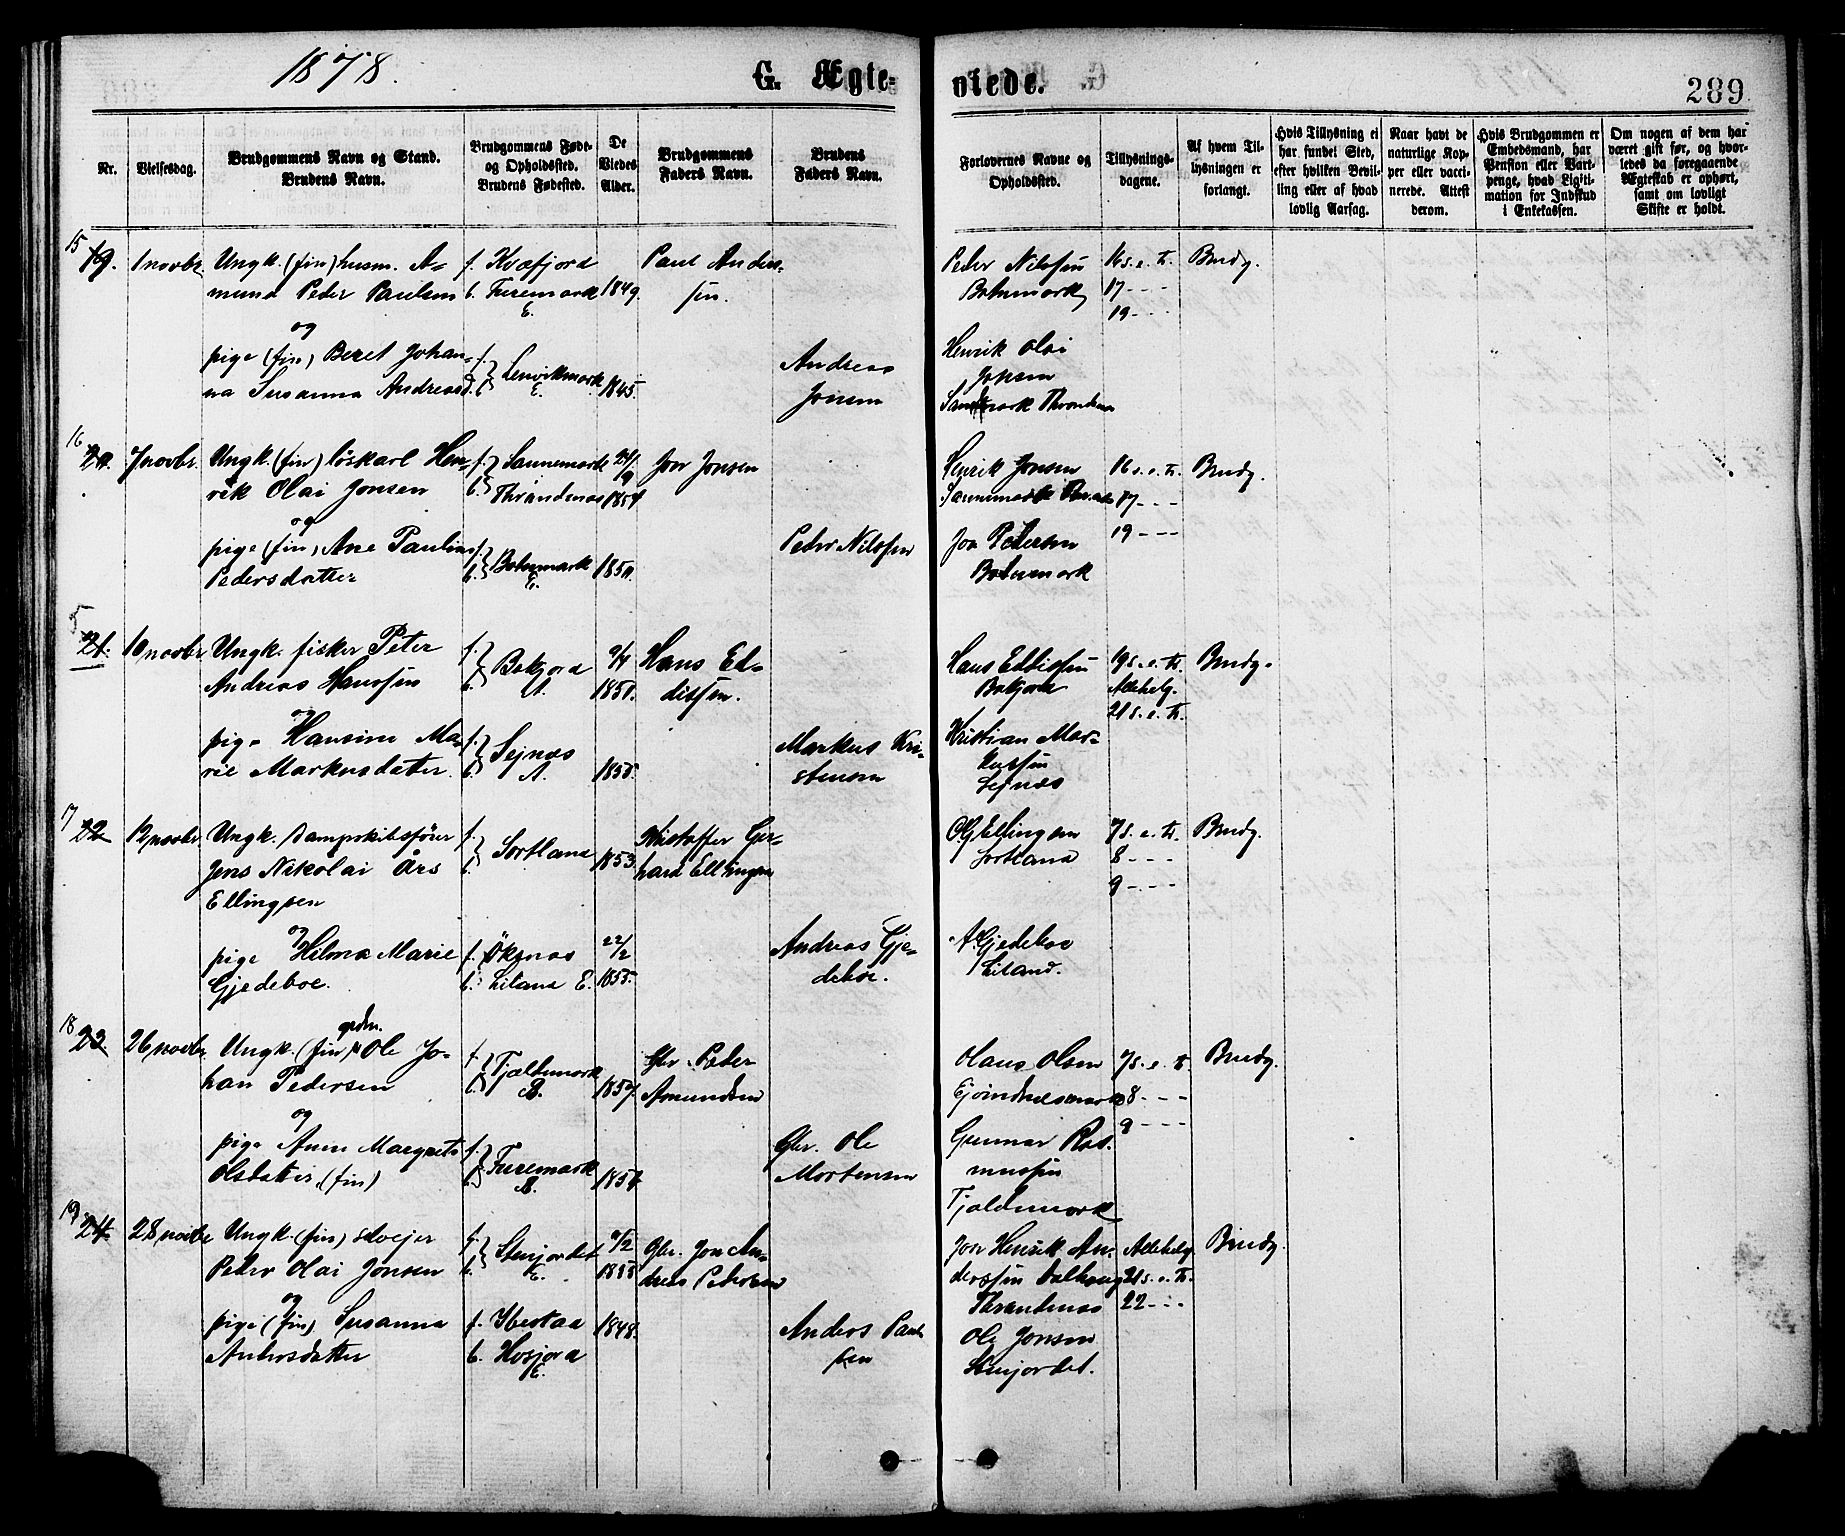 1878.
G. Ægte-
viede.
289.
Nr.
Vielsesdag.
Brudgommens Navn og Stand.
Brudens Navn.
Brudgommens Føde-
og Opholdssted.
Brudens Fødested.
De
Viedes
Alder.
Brudgommens
Faders Navn.
Brudens
Faders Navn.
Forlovernes Navne og
Opholdssted.
Tillysnings-
dagene.
Af hvem Til-
lysningen er
forlangt.
Hvis Tillysning ei
har fundet Sted,
efter hvilken Bevil-
ling eller af hvad
lovlig Aarsag.
Naar havt de
naturlige Kop-
per eller vacci-
nerede. Attest
derom.
Hvis Brudgommen er
Embedsmand, har
Pension eller Vart-
penge, hvad Ligiti-
mation for Indskud
i Enkekassen.
Om nogen af dem har
været gift før, og hvor-
ledes da foregaaende
Ægteskab er ophørt,
samt om lovligt
Skifte er holdt.
15
19.
1 novbr.
Ungk. (fin) husm. A-
mund Peder Paulsen
f. Kvæfjord
b. Furemark
E.
1849.
Paul Ander-
sen.
Peder Nilssen
Botnmark
16 s. e. tr.
17 - - -
19 - - -
Brudg.
og
pige (fin) Beret Johan-
na Susanna Andreasd.
f.
b.
Lenvikmark
E.
1845.
Andreas
Jonsen
Henrik Olai
Jonsen
Sandmark Throndenes
16
20.
7 novbr.
Ungk. (fin) löskarl Hen-
rik Olai Jonsen
f. Sannemark
b. Thrandenæs
24/9
1854
Jon Jonsen
Henrik Jonsen
Sannemark
16 s. e. tr.
17 - - -
19 - - -
Brudg.
og
pige (fin) Ane Pauline
Pedersdatter
f.
b.
Botnmark
E.
1850.
Peder Nilssen
Jon Pedersen
Botnmark
5
21.
10 novbr.
Ungk. fisker Peter
Andreas Hanssen
f.
b.
Bekjord
A.
9/4
1851.
Hans Ed-
dissen.
Hans Eddissen
Bekjord
19 s. e. tr.
Allehelg.
21 s. e. tr.
Brudg.
og
pige Hansine Ma-
rie Markusdatter
f.
b.
Sejnæs
A.
1855.
Markus Kri-
stensen
Kristian Mar-
kussen
Sejnæs
17
22
12 novbr.
Ungk. Dampskibsförer
Jens Nikolai Års
Ellingsen
f.
b.
Sortland
1853.
Kristoffer Ger-
hard Ellingsen
Ellingsen
Sortland
7 s. e. tr.
8 - - -
9 - - -
Brudg.
og
pige Hilma Marie
Gjedeboe.
f. Öksnæs
b. Liland E.
22/2
1855.
Andreas Gje-
deboe.
A. Gjedeboe
Liland.
18
23.
26 novbr.
grdm.
Ungk. (fin) Ole Jo-
han Pedersen
f.
b.
Tjældemark
B.
1857.
Gbr. Peder
Amundsen
Olaus Olsen
Ejvindnesmark
7 s. e. tr.
8 - - -
9 - - -
Brudg.
og
pige Anne Margrete
Olsdatter (fin)
f.
b.
Furemark
B.
1854.
Gbr. Ole
Mortensen
Gunnar Ras-
mussen
Tjældemark
19
24.
28 novbr.
Ungk. (fin) selvejer
Peder Olai Jonsen
f.
b.
Stenjordet
E.
1855
Gbr. Jon An-
dreas Pedersen
Jon Henrik An-
derssen Dalhaug
Thrandenæs
Allehelg.
21 s. e. tr.
22 - - -
Brudg.
og
pige (fin) Susanna
Andersdatter
f. Ibestad
b. Hosjord
E.
1848.
Anders Paul-
sen
Ole Jonsen
Stenjordet.